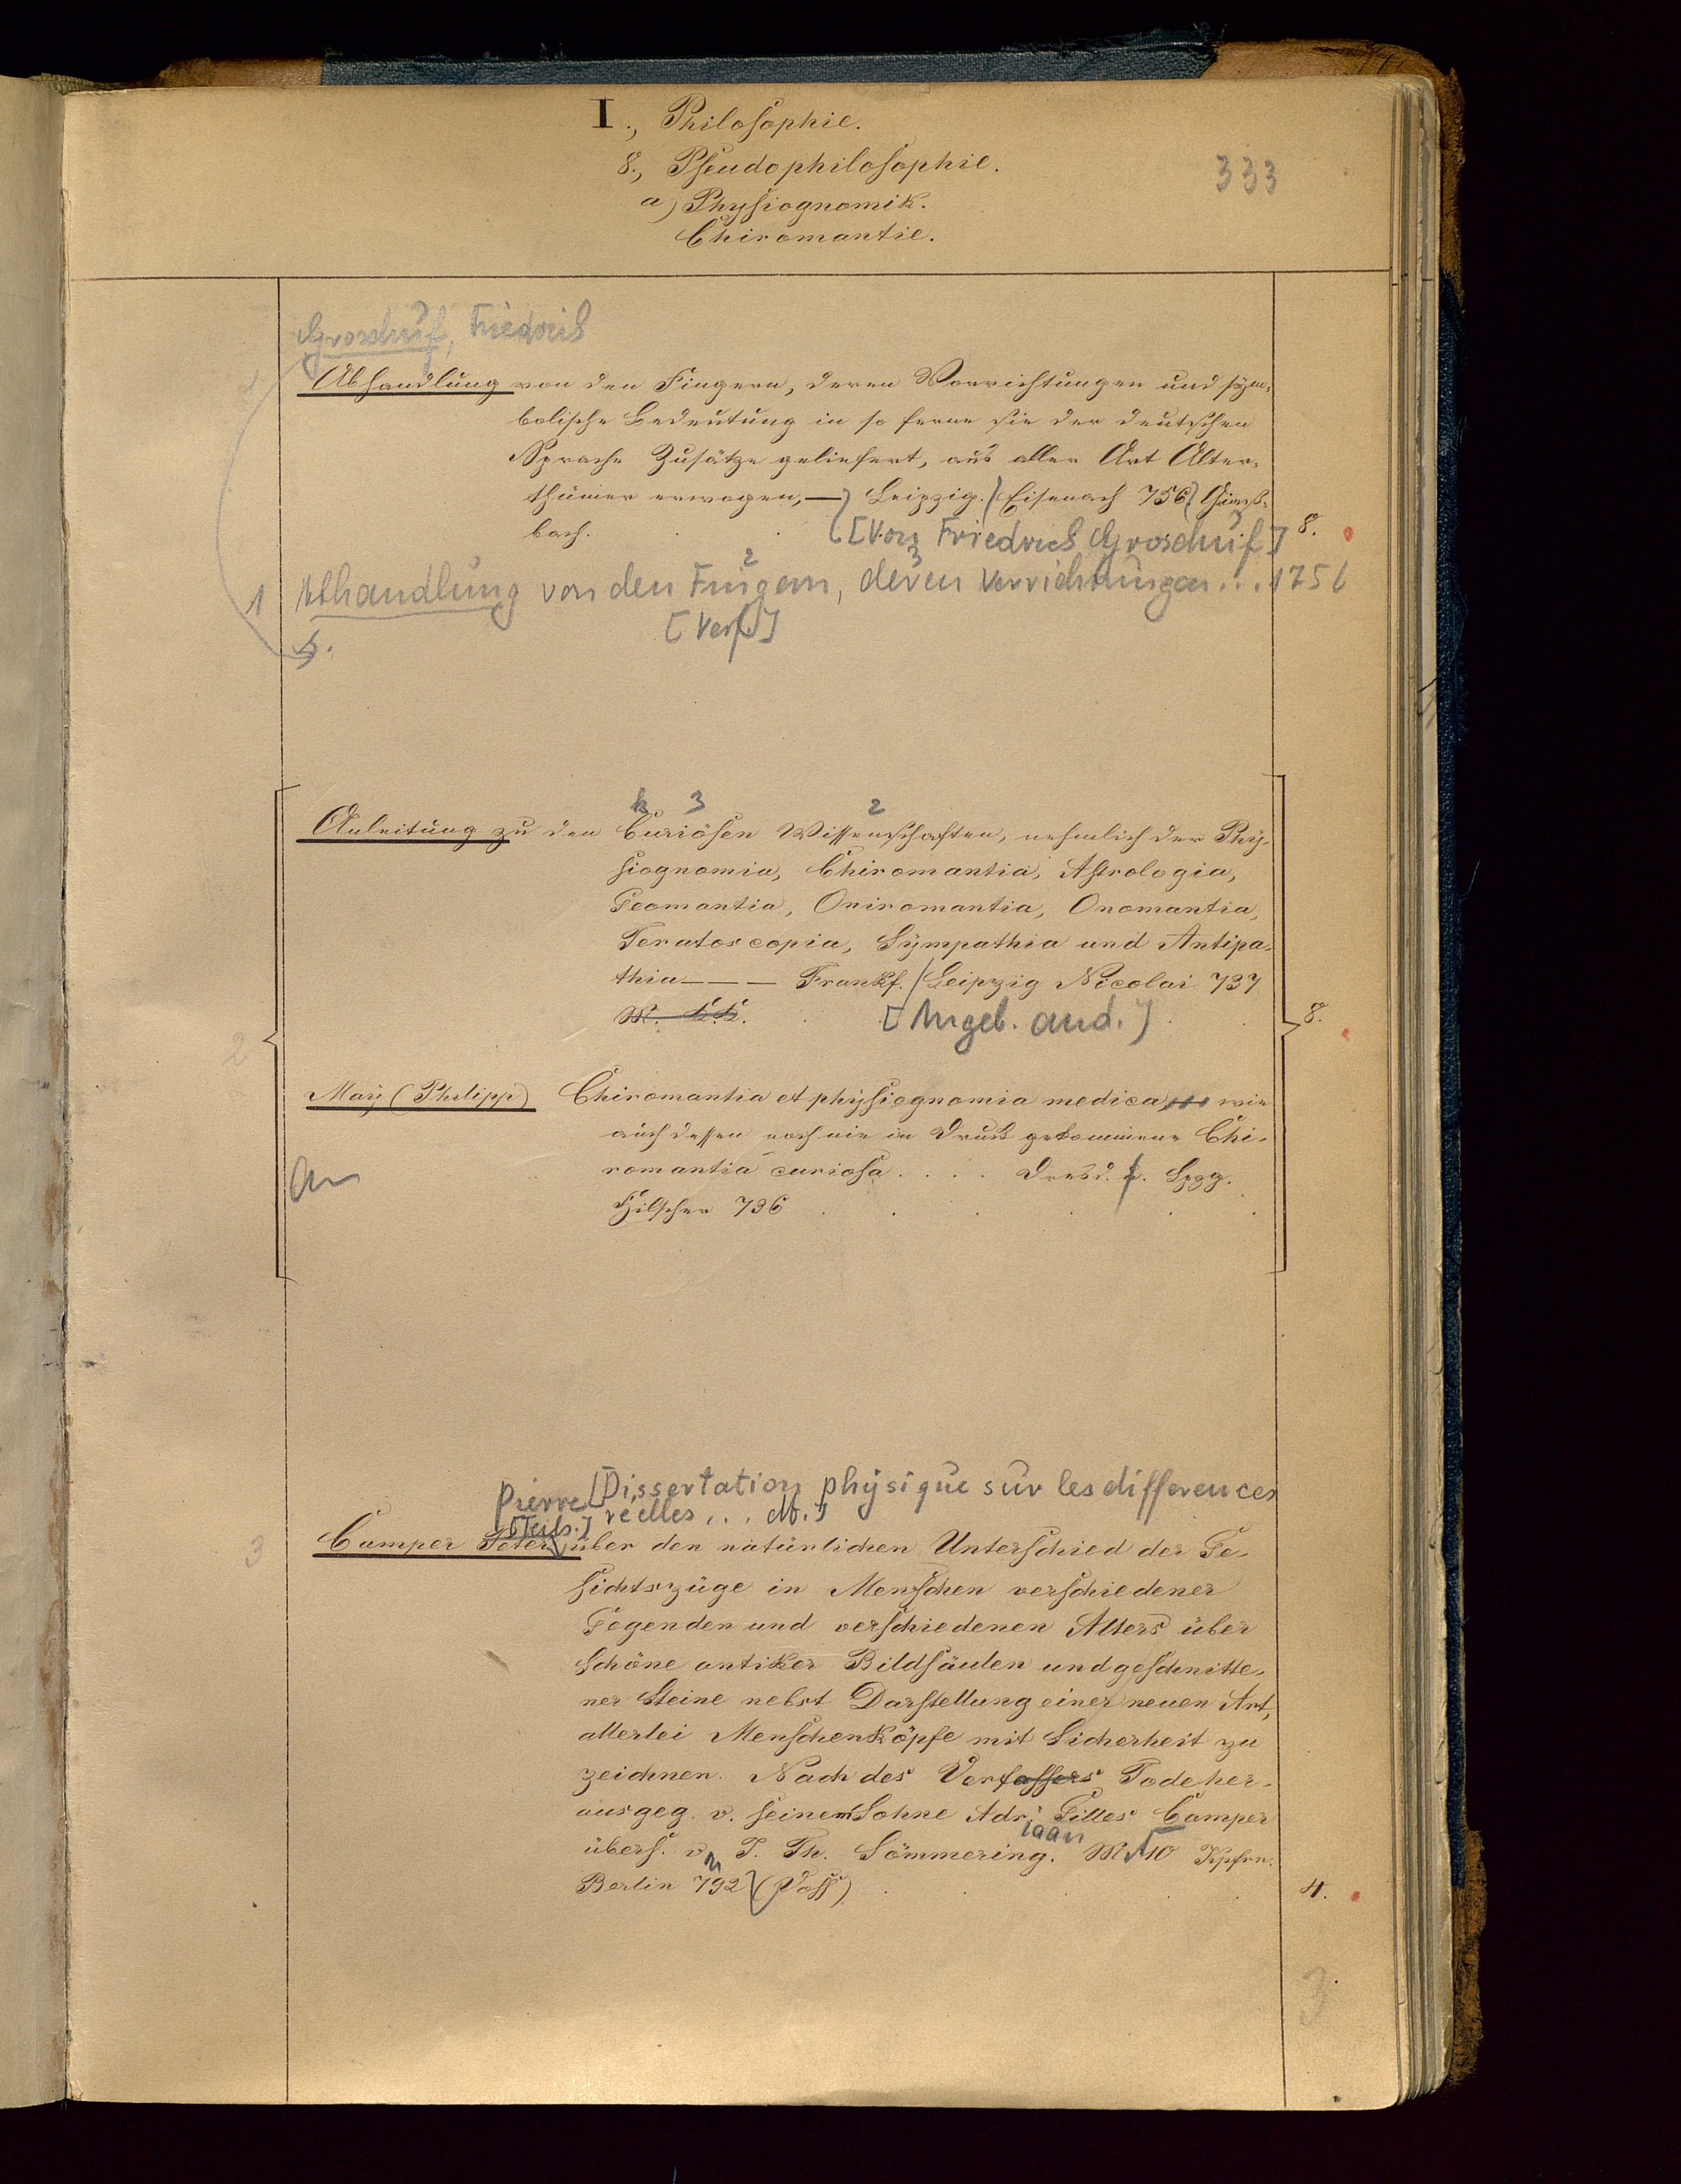 I., Philosophie.
8., Pseudophilosophie.
333
a) Physiognomik.
Chiromantie.
Groschuf, Friedrich
Abhandlung von den Fingern, deren Vorrichtungen und sym-
bolische Bedeutung in so ferne sie der deutschen
Sprache Zusätze geliefert, aus aller Art Alter-
thümer erwogen, — Leipzig. / Eisenach 756
bach. [Von Friedrich Groschuf] 8.
1 Abhandlung von den Fingern, deren Verrichtungen... 1756
2 3
[Verf.]
s.
k 3 2
Anleitung zu den Curiösen Wissenschaften, nehmlich der Phy-
siognomia, Chiromantia, Astrologia,
Geomantia, Oniromantia, Onomantia,
Teratoscopia, Sympathia und Antipa-
thia — — — Frankf. / Leipzig Nicolai 737
[Angeb. and.] 8.
2
May (Philipp) Chiromantia et physiognomia medica, wie
auch dessen noch nie in Druck gekommene Chi-
romantia curiosa . . . . Dresd. & Lpzg.
an
Hilscher 736
Pierre [Dissertation physique sur les differences
[Teils.] réelles ... dt.]
3 Camper Peter über den natürlichen Unterschied der Ge-
sichtszüge in Menschen verschiedener
Gegenden und verschiedenen Alters über
schöne antiker Bildsäulen und geschnitte-
ner Steine nebst Darstellung einer neuen Art,
allerlei Menschenköpfe mit Sicherheit zu
zeichnen. Nach des Verfassers Tode her-
ausgeg. v. seinem Sohne Adr. Gilles Camper
iaan
übers. v. S. Th. Sömmering. M 10 Kpfrn.
Berlin 792 (Voss) 4.
3